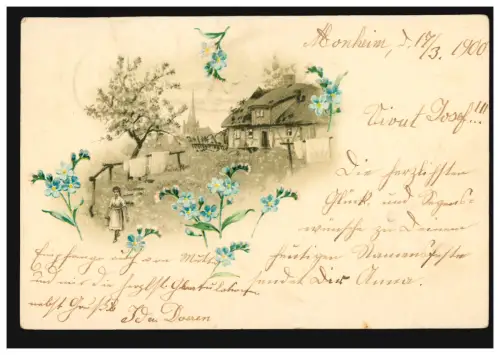 Monheim, d. 17/3. 1900
Vivat Josef!!!
Die herzlichsten
Glück- und Segens-
wünsche zu Deinem
heutigen Namensfeste
sendet Dir Anna.
Empfange auch von Mutter
und mir die herzlst. Gratulation
nebst Gruß
Doeren